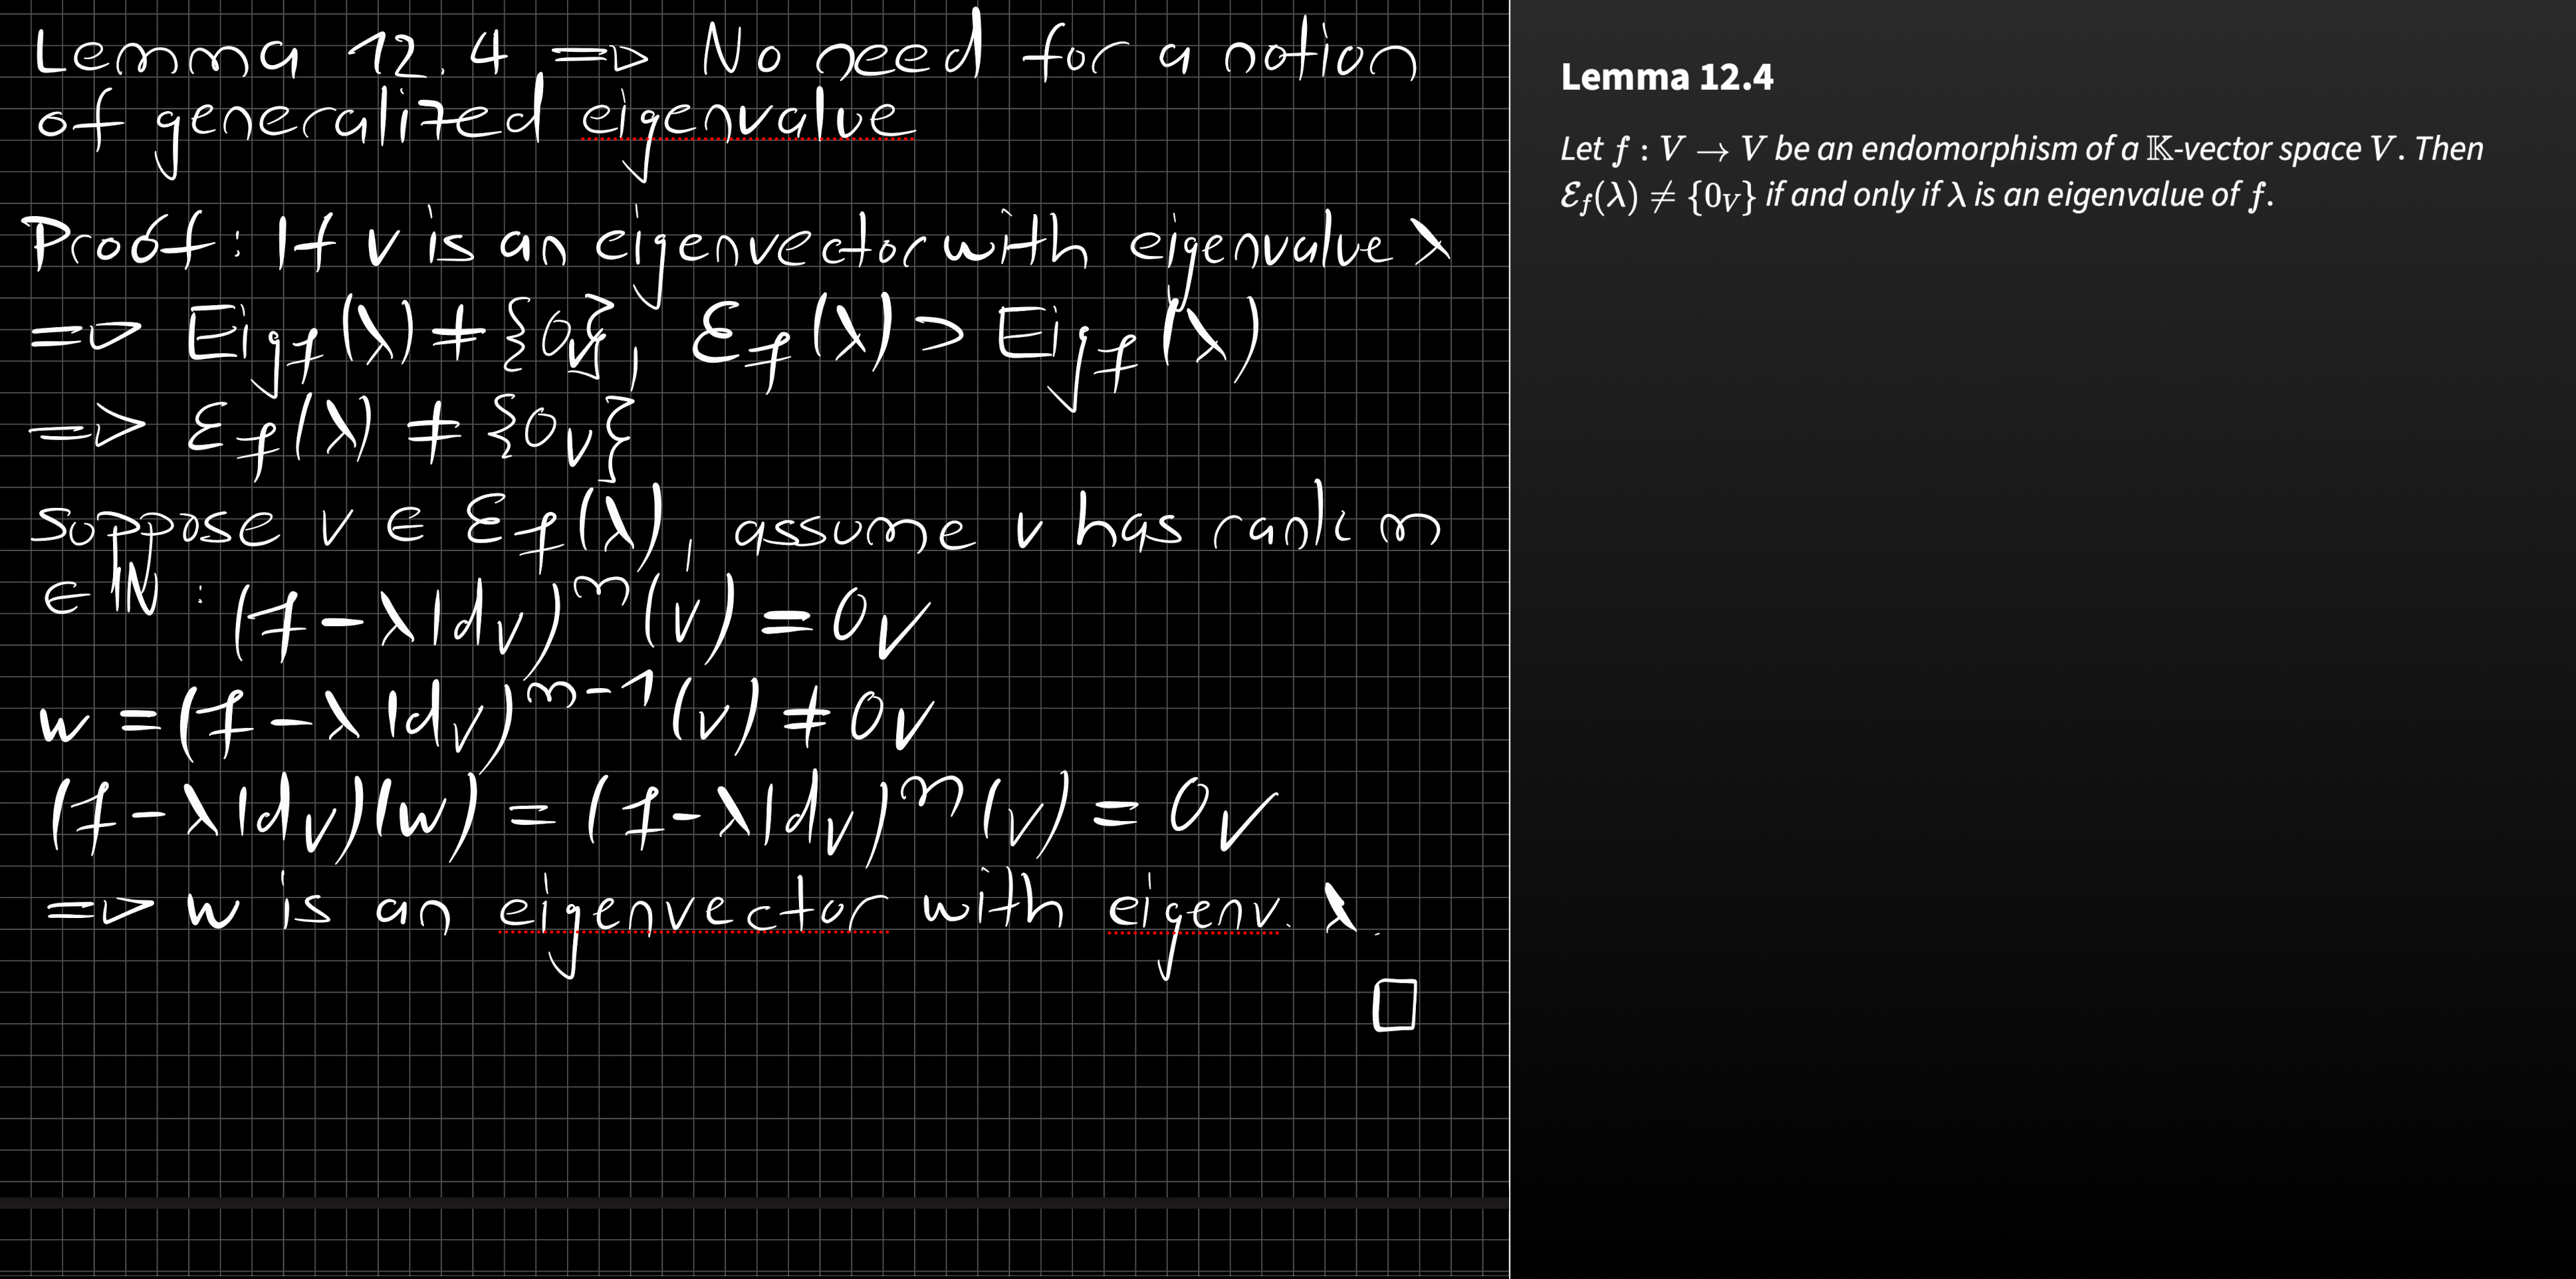 Lemma 12.4 => No need for a notion
of generalized eigenvalue
Proof: If v is an eigenvector with eigenvalue λ
=> Eig_f(λ) ≠ {0_V}, ℰ_f(λ) ⊃ Eig_f(λ)
=> ℰ_f(λ) ≠ {0_V}
Suppose v ∈ ℰ_f(λ), assume v has rank m
∈ ℕ : (f - λ Id_V)^m (v) = 0_V
w = (f - λ Id_V)^{m-1} (v) ≠ 0_V
(f - λ Id_V)(w) = (f - λ Id_V)^m (v) = 0_V
=> w is an eigenvector with eigenv. λ.
□
Lemma 12.4
Let f : V → V be an endomorphism of a 𝕂-vector space V. Then
ℰ_f(λ) ≠ {0_V} if and only if λ is an eigenvalue of f.